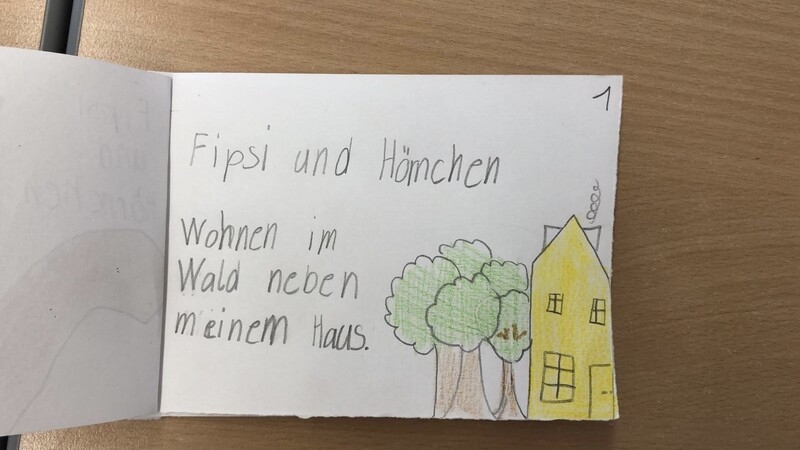 1
Fipsi und Hörnchen
Wohnen im
Wald neben
meinem Haus.